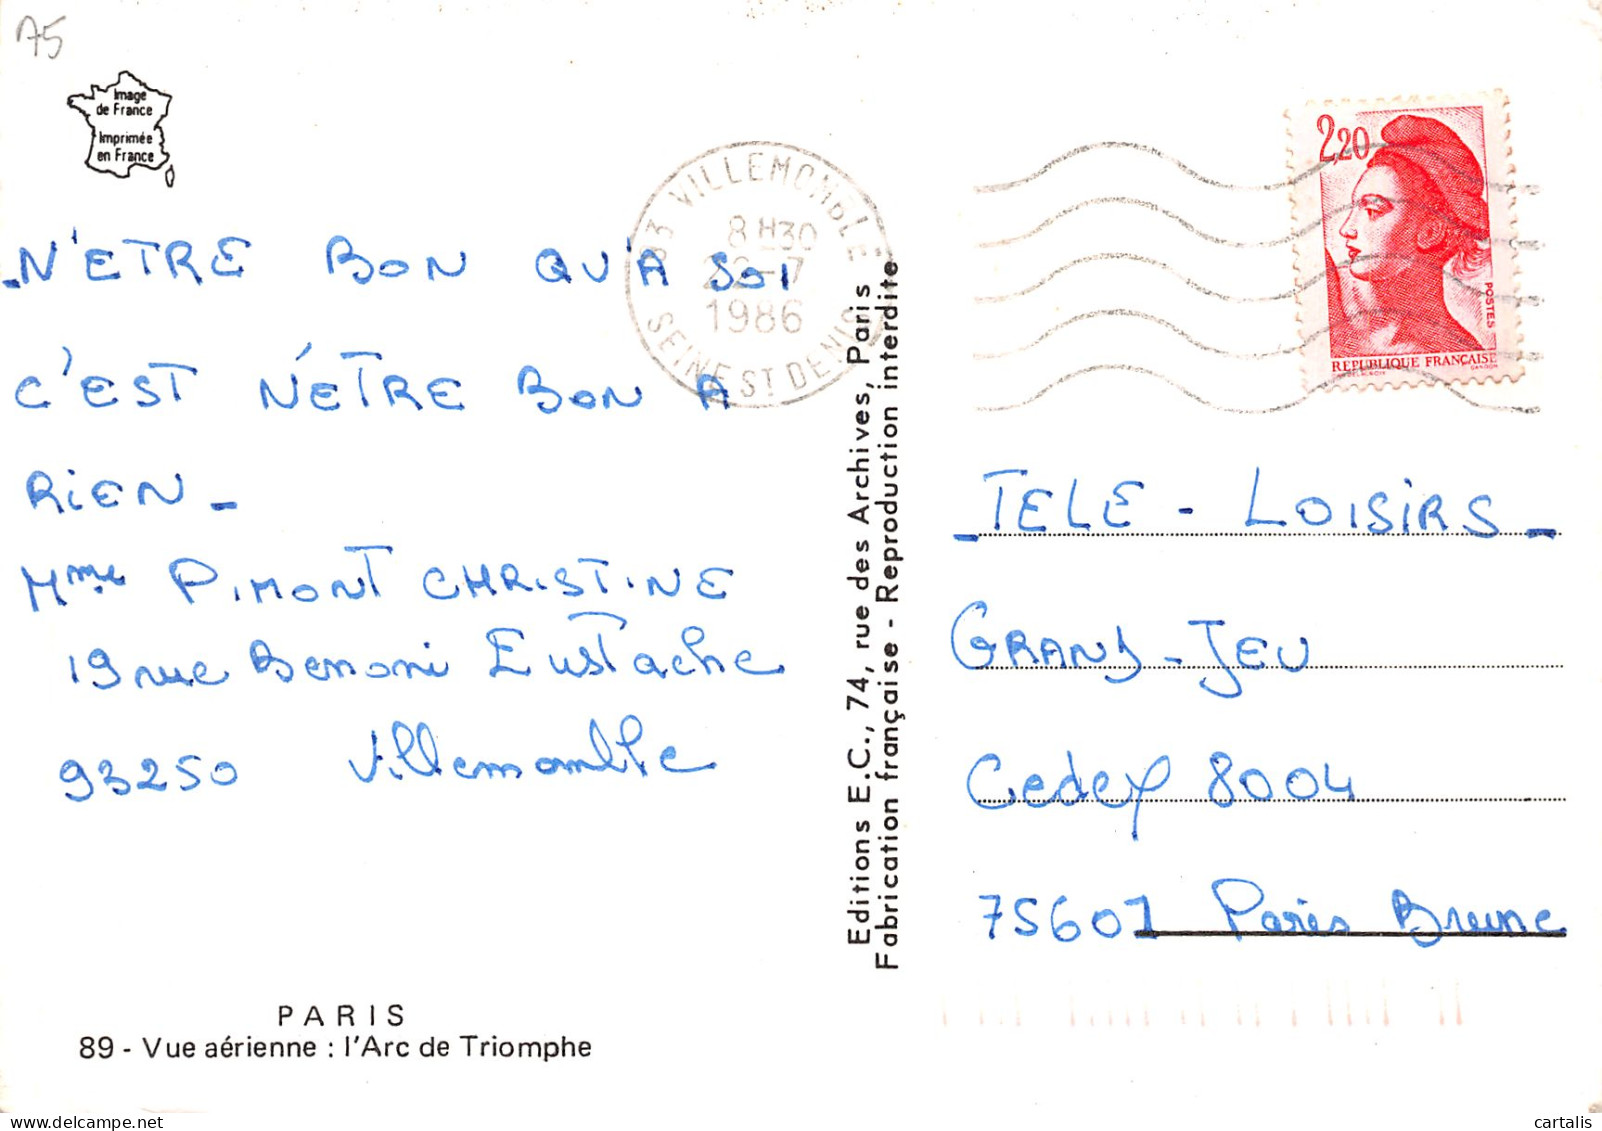 75
Image
de France
Imprimée
en France
N'ETRE BON QU'A SOI
C'EST N'ETRE BON A
RIEN -
Mme PIMONT CHRISTINE
19 rue Benoni Eustache
93250 Villemomble
93 VILLEMOMBLE
8H30
22-7
1986
SEINE ST DENIS
2,20
POSTES
REPUBLIQUE FRANÇAISE
Editions E.C., 74, rue des Archives, Paris
Fabrication française - Reproduction interdite
- TELE - LOISIRS -
GRAND - JEU
Cedex 8004
75607 Paris Brune
PARIS
89 - Vue aérienne : l'Arc de Triomphe
delcampe.net
cartalis